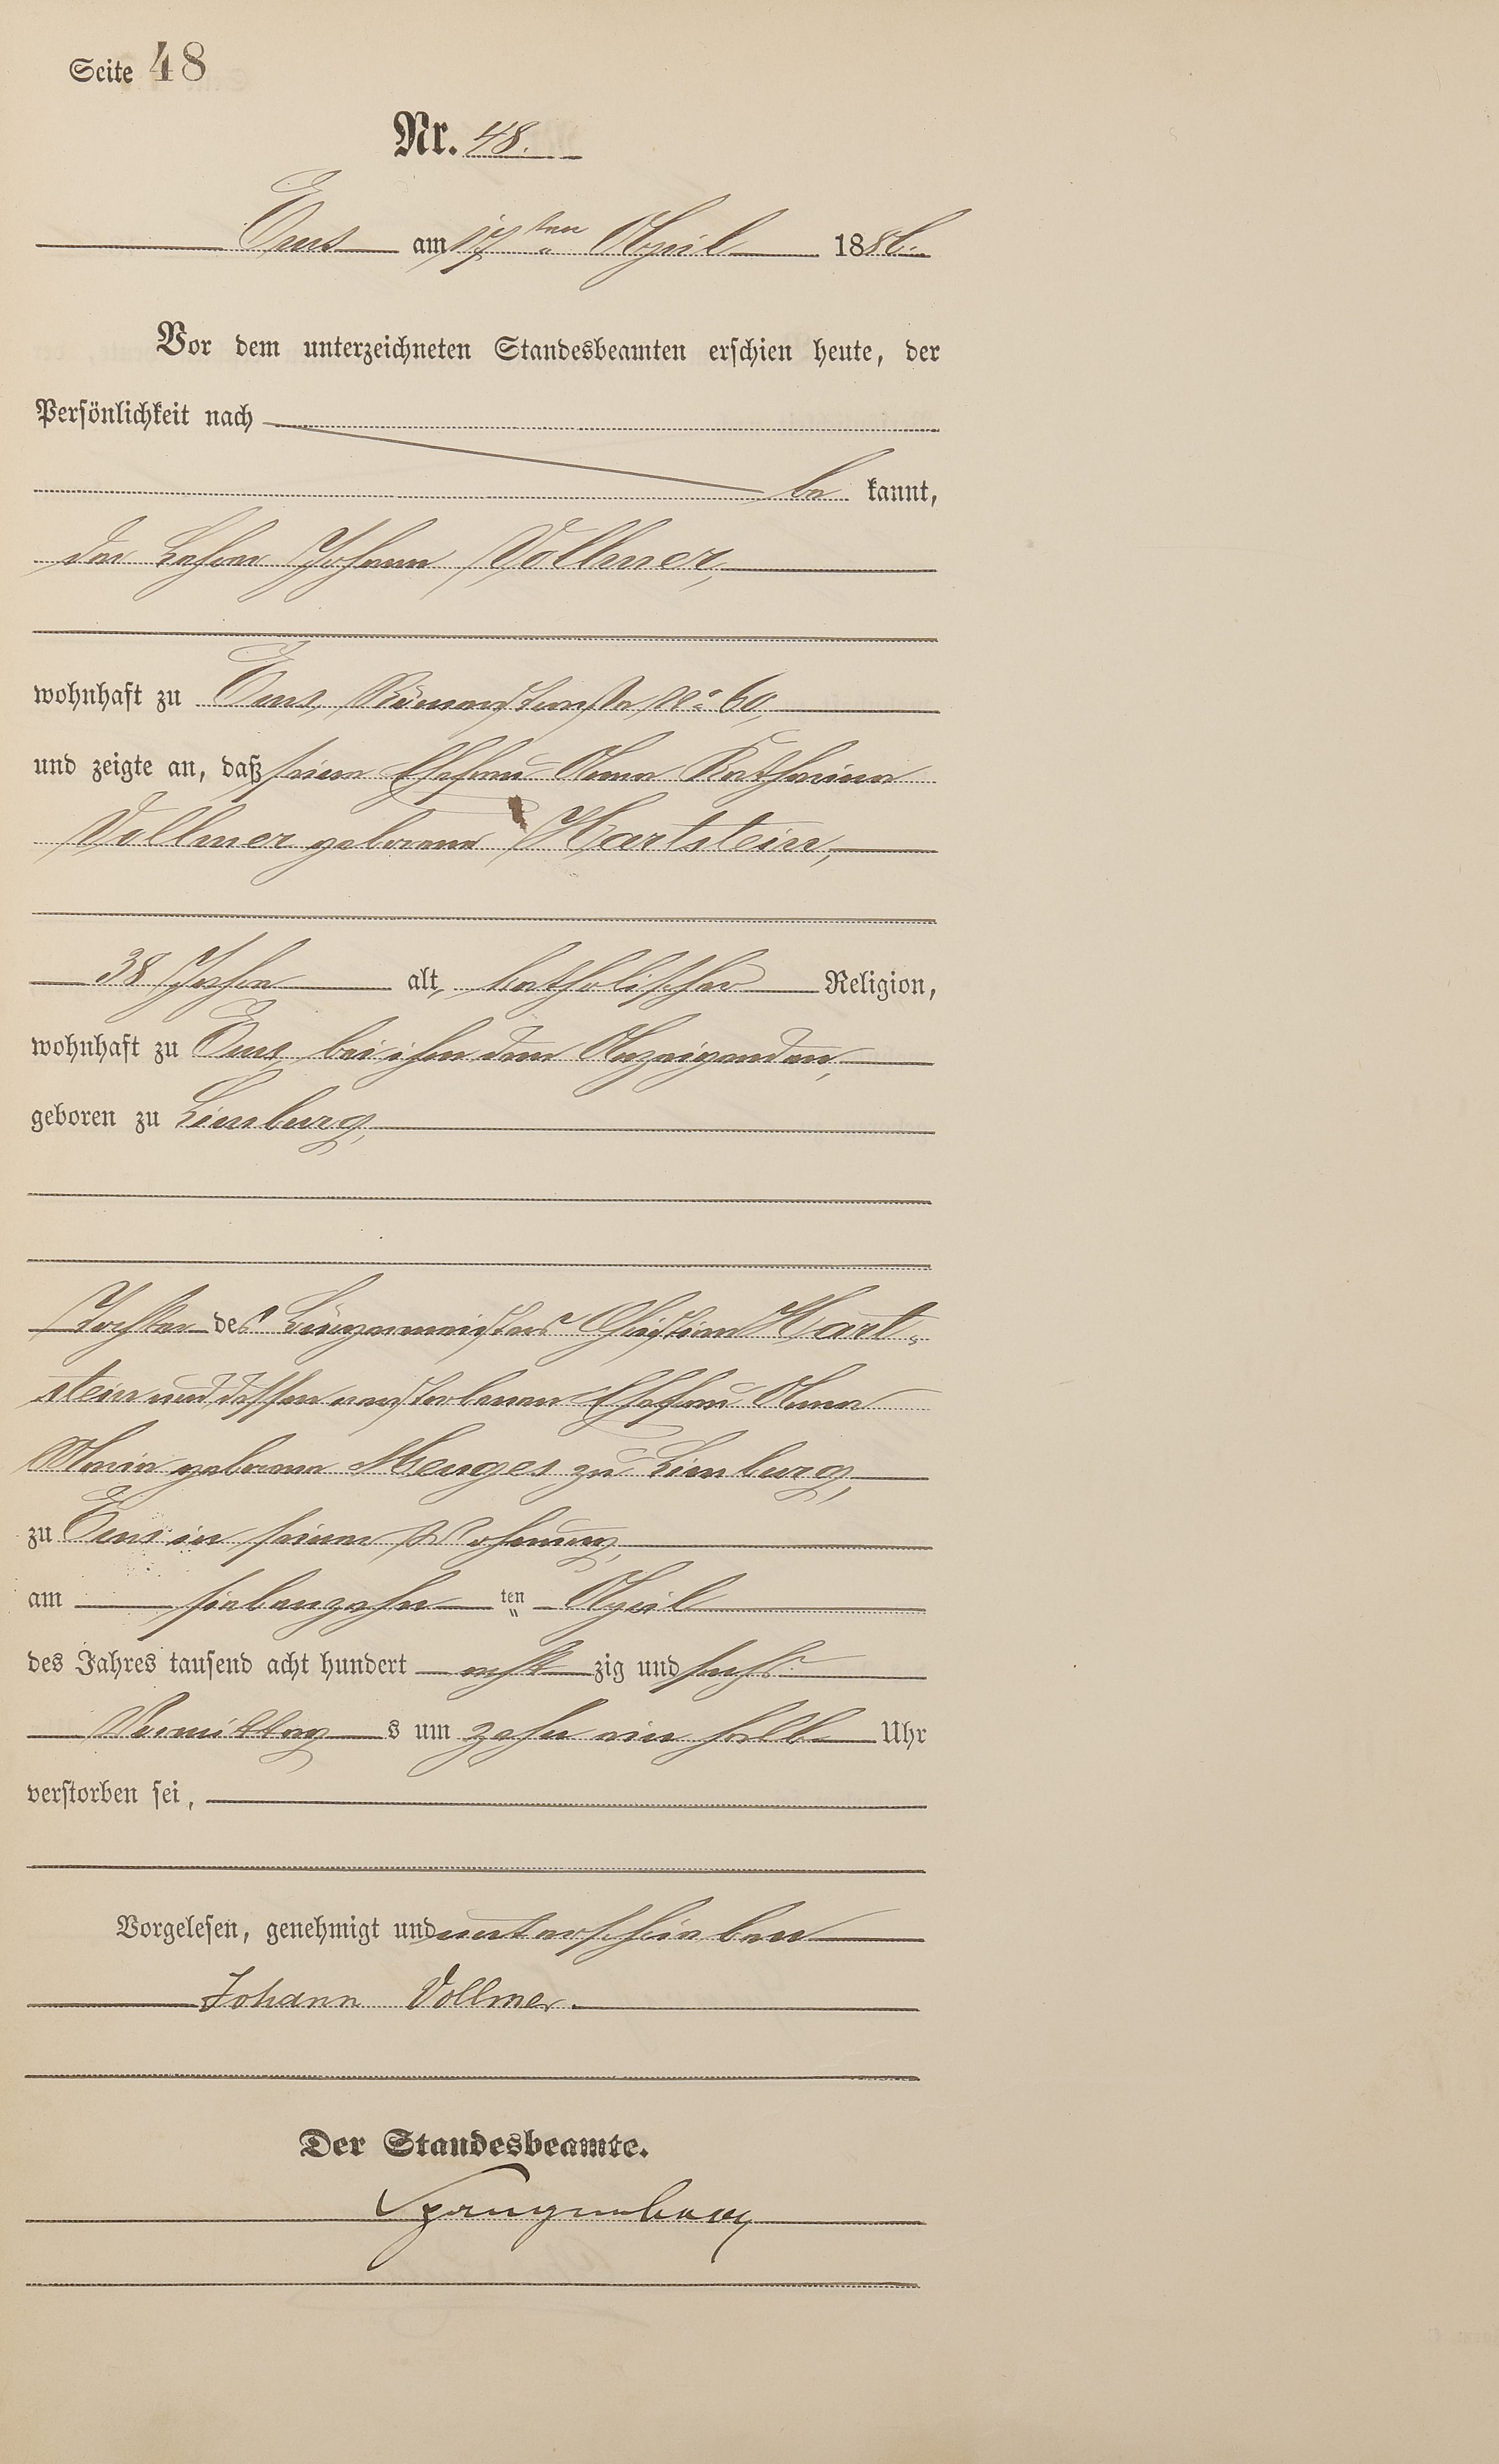 Seite 48
Nr. 48.
Ems am 17 ten April 1886.
Vor dem unterzeichneten Standesbeamten erschien heute, der
Persönlichkeit nach
be kannt,
der Lehrer Johann Vollmer,
wohnhaft zu Ems, Römerstraße No 60,
und zeigte an, daß seine Ehefrau Anna Katharina
Vollmer geborene Hartstein,
38 Jahre alt, katholischer Religion,
wohnhaft zu Ems bei ihm dem Anzeigenden,
geboren zu Limburg,
Tochter des Bürgermeisters Christian Hart-
stein und dessen verstorbenen Ehefrau Anna
Maria geborene Menges zu Limburg,
zu Ems in seiner Wohnung,
am siebenzehn ten April
des Jahres tausend acht hundert acht zig und sechs
Vormittag s um zehn ein halb Uhr
verstorben sei,
Vorgelesen, genehmigt und unterschrieben
Johann Vollmer.
Der Standesbeamte.
Spangenberg